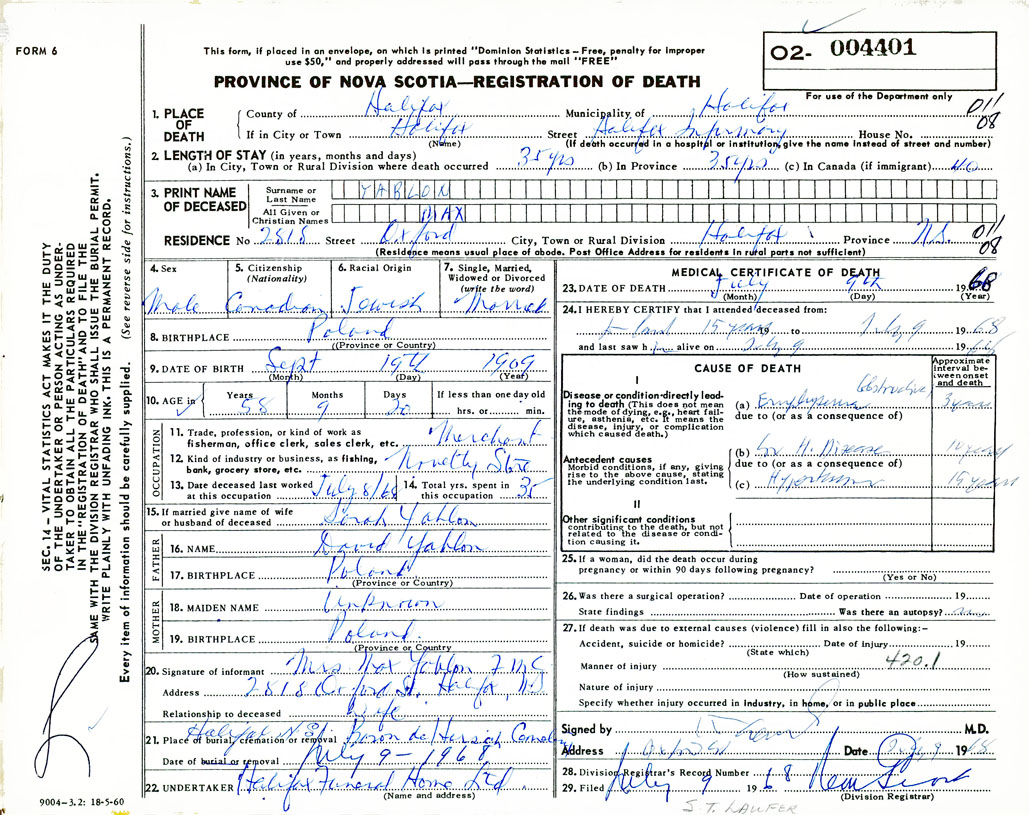 FORM 6
This form, if placed in an envelope, on which is printed "Dominion Statistics – Free, penalty for improper
use $50," and properly addressed will pass through the mail "FREE"
PROVINCE OF NOVA SCOTIA—REGISTRATION OF DEATH
O2- 004401
For use of the Department only
011
08
1. PLACE OF DEATH
County of Halifax Municipality of Halifax
If in City or Town Halifax Street Halifax Infirmary House No.
(Name) (If death occurred in a hospital or institution, give the name instead of street and number)
2. LENGTH OF STAY (in years, months and days)
(a) In City, Town or Rural Division where death occurred 35 yrs (b) In Province 35 yrs (c) In Canada (if immigrant) 40
3. PRINT NAME OF DECEASED
Surname or Last Name YABLON
All Given or Christian Names MAX
RESIDENCE No 2818 Street Oxford City, Town or Rural Division Halifax Province N.S.
011
08
(Residence means usual place of abode. Post Office Address for residents in rural parts not sufficient)
4. Sex Male
5. Citizenship (Nationality) Canadian
6. Racial Origin Jewish
7. Single, Married, Widowed or Divorced (write the word) Married
8. BIRTHPLACE Poland
(Province or Country)
9. DATE OF BIRTH Sept 19th 1909
(Month) (Day) (Year)
10. AGE in Years 58 Months 9 Days 20 If less than one day old hrs. or min.
OCCUPATION
11. Trade, profession, or kind of work as
fisherman, office clerk, sales clerk, etc. Merchant
12. Kind of industry or business, as fishing,
bank, grocery store, etc. Novelty Store
13. Date deceased last worked
at this occupation July 8/68
14. Total yrs. spent in
this occupation 35
15. If married give name of wife
or husband of deceased Sarah Yablon
FATHER
16. NAME David Yablon
17. BIRTHPLACE Poland
(Province or Country)
MOTHER
18. MAIDEN NAME Unknown
19. BIRTHPLACE Poland.
(Province or Country)
20. Signature of informant Mrs. Max Yablon
Address 2818 Oxford St. Halifax, N.S.
Relationship to deceased Wife
21. Place of burial, cremation or removal Halifax N.S. Baron de Hirsch
Date of burial or removal July 9 - 1968
22. UNDERTAKER Halifax Funeral Home Ltd
(Name and address)
MEDICAL CERTIFICATE OF DEATH
23. DATE OF DEATH July 9th 1968
(Month) (Day) (Year)
24. I HEREBY CERTIFY that I attended deceased from:
15 years 19 to July 9 1968
and last saw him alive on July 9 19
CAUSE OF DEATH
Approximate interval between onset and death
I
Disease or condition directly leading to death (This does not mean
the mode of dying, e.g., heart failure, asthenia, etc. It means the
disease, injury, or complication
which caused death.)
(a) Emphysema Obstructive 3 years
due to (or as a consequence of)
Antecedent causes
Morbid conditions, if any, giving
rise to the above cause, stating
the underlying condition last.
(b) H. Disease 10 years
due to (or as a consequence of)
(c) Hypertension 15 years
II
Other significant conditions
contributing to the death, but not
related to the disease or condition causing it.
25. If a woman, did the death occur during
pregnancy or within 90 days following pregnancy?
(Yes or No)
26. Was there a surgical operation? Date of operation 19
State findings Was there an autopsy?
27. If death was due to external causes (violence) fill in also the following:–
Accident, suicide or homicide? Date of injury 19
(State which)
Manner of injury 420.1
(How sustained)
Nature of injury
Specify whether injury occurred in Industry, in home, or in public place
Signed by M.D.
Address Oxford St Date July 9 1968
28. Division Registrar's Record Number
29. Filed July 9 1968
(Division Registrar)
S.T. LAUFER
SEC. 14 – VITAL STATISTICS ACT MAKES IT THE DUTY
OF THE UNDERTAKER OR PERSON ACTING AS UNDER-
TAKER TO OBTAIN ALL THE PARTICULARS REQUIRED
IN THE "REGISTRATION OF DEATH" AND TO FILE THE
SAME WITH THE DIVISION REGISTRAR WHO SHALL ISSUE THE BURIAL PERMIT.
WRITE PLAINLY WITH UNFADING INK. THIS IS A PERMANENT RECORD.
Every item of information should be carefully supplied. (See reverse side for instructions.)
9004–3.2: 18-5-60